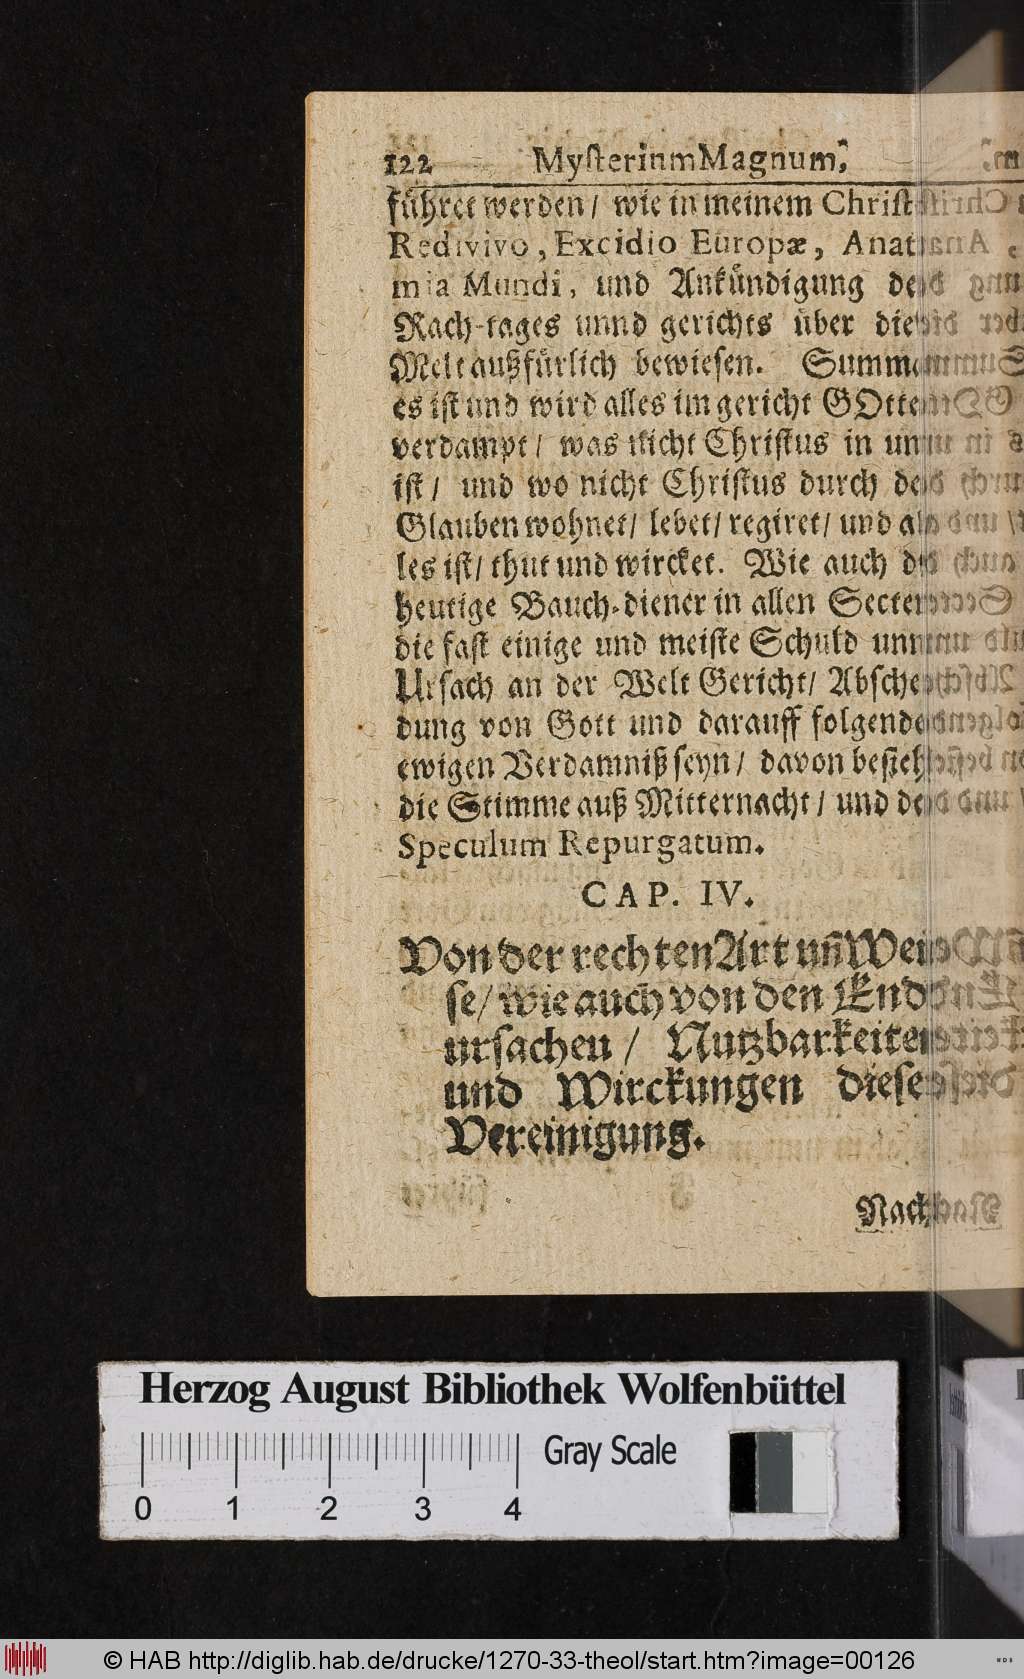 122 MysterinmMagnum,
führet werden/ wie in meinem Christ
Redivivo, Excidio Europæ, Anat
mia Mundi, und Ankündigung de
Rach-tages unnd gerichts über die
Welt außfürlich bewiesen. Summ
es ist und wird alles im gericht GOtte
verdampt/ was nicht Christus in un
ist/ und wo nicht Christus durch de
Glauben wohnet/ lebet/ regiret/ und al
les ist/ thut und wircket. Wie auch d
heutige Bauch-diener in allen Secte
die fast einige und meiste Schuld unn
Ursach an der Welt Gericht/ Absche
dung von Gott und darauff folgende
ewigen Verdamniß seyn/ davon besieh
die Stimme auß Mitternacht/ und de
Speculum Repurgatum.
CAP. IV.
Von der rechten Art uñ Wei
se/ wie auch von den End
ursachen/ Nutzbarkeite
und Wirckungen diese
Vereinigung.
Nach
Herzog August Bibliothek Wolfenbüttel
Gray Scale
0 1 2 3 4
© HAB http://diglib.hab.de/drucke/1270-33-theol/start.htm?image=00126